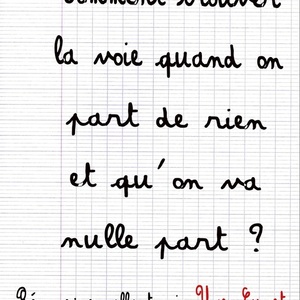 comment trouver
la voie quand on
part de rien
et qu'on va
nulle part ?